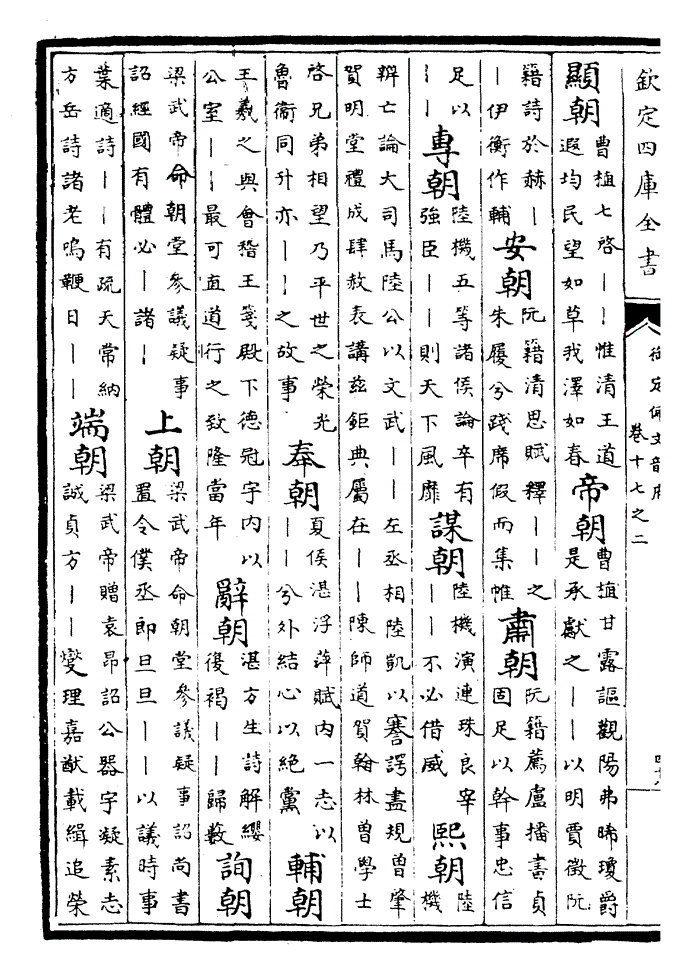 欽定四庫全書
御定佩文韻府
卷十七之二
顯朝
曹植七啓丨丨惟清王道
遐均民望如草我澤如春
帝朝
曹植甘露謳觀陽弗晞瓊爵
是承獻之丨丨以明賈徵阮
籍詩於赫丨
丨伊衡作輔
安朝
阮籍清思賦釋丨丨之
朱履兮踐席假而集帷
肅朝
阮籍薦盧播書貞
固足以幹事忠信
足以
丨丨
專朝
陸機五等諸侯論卒有
強臣丨丨則天下風靡
謀朝
陸機演連珠良宰
丨丨不必借威
熙朝
陸
機
辨亡論大司馬陸公以文武丨丨左丞相陸凱以謇諤盡規曾肇
賀明堂禮成肆赦表講兹鉅典屬在丨丨陳師道賀翰林曾學士
啓兄弟相望乃平世之榮光
魯衛同升亦丨丨之故事
奉朝
夏侯湛浮萍賦内一志以
丨丨兮外結心以絶黨
輔朝
王羲之與會稽王箋殿下德冠宇内以
公室丨丨最可直道行之致隆當年
辭朝
湛方生詩解纓
復褐丨丨歸藪
詢朝
梁武帝命朝堂參議疑事
詔經國有體必丨諸丨
上朝
梁武帝命朝堂參議疑事詔尚書
置令僕丞郎旦旦丨丨以議時事
葉適詩丨丨有疏天常納
方岳詩諸老鳴鞭日丨丨
端朝
梁武帝贈袁昂詔公器宇凝素志
誠貞方丨丨爕理嘉猷載緝追榮